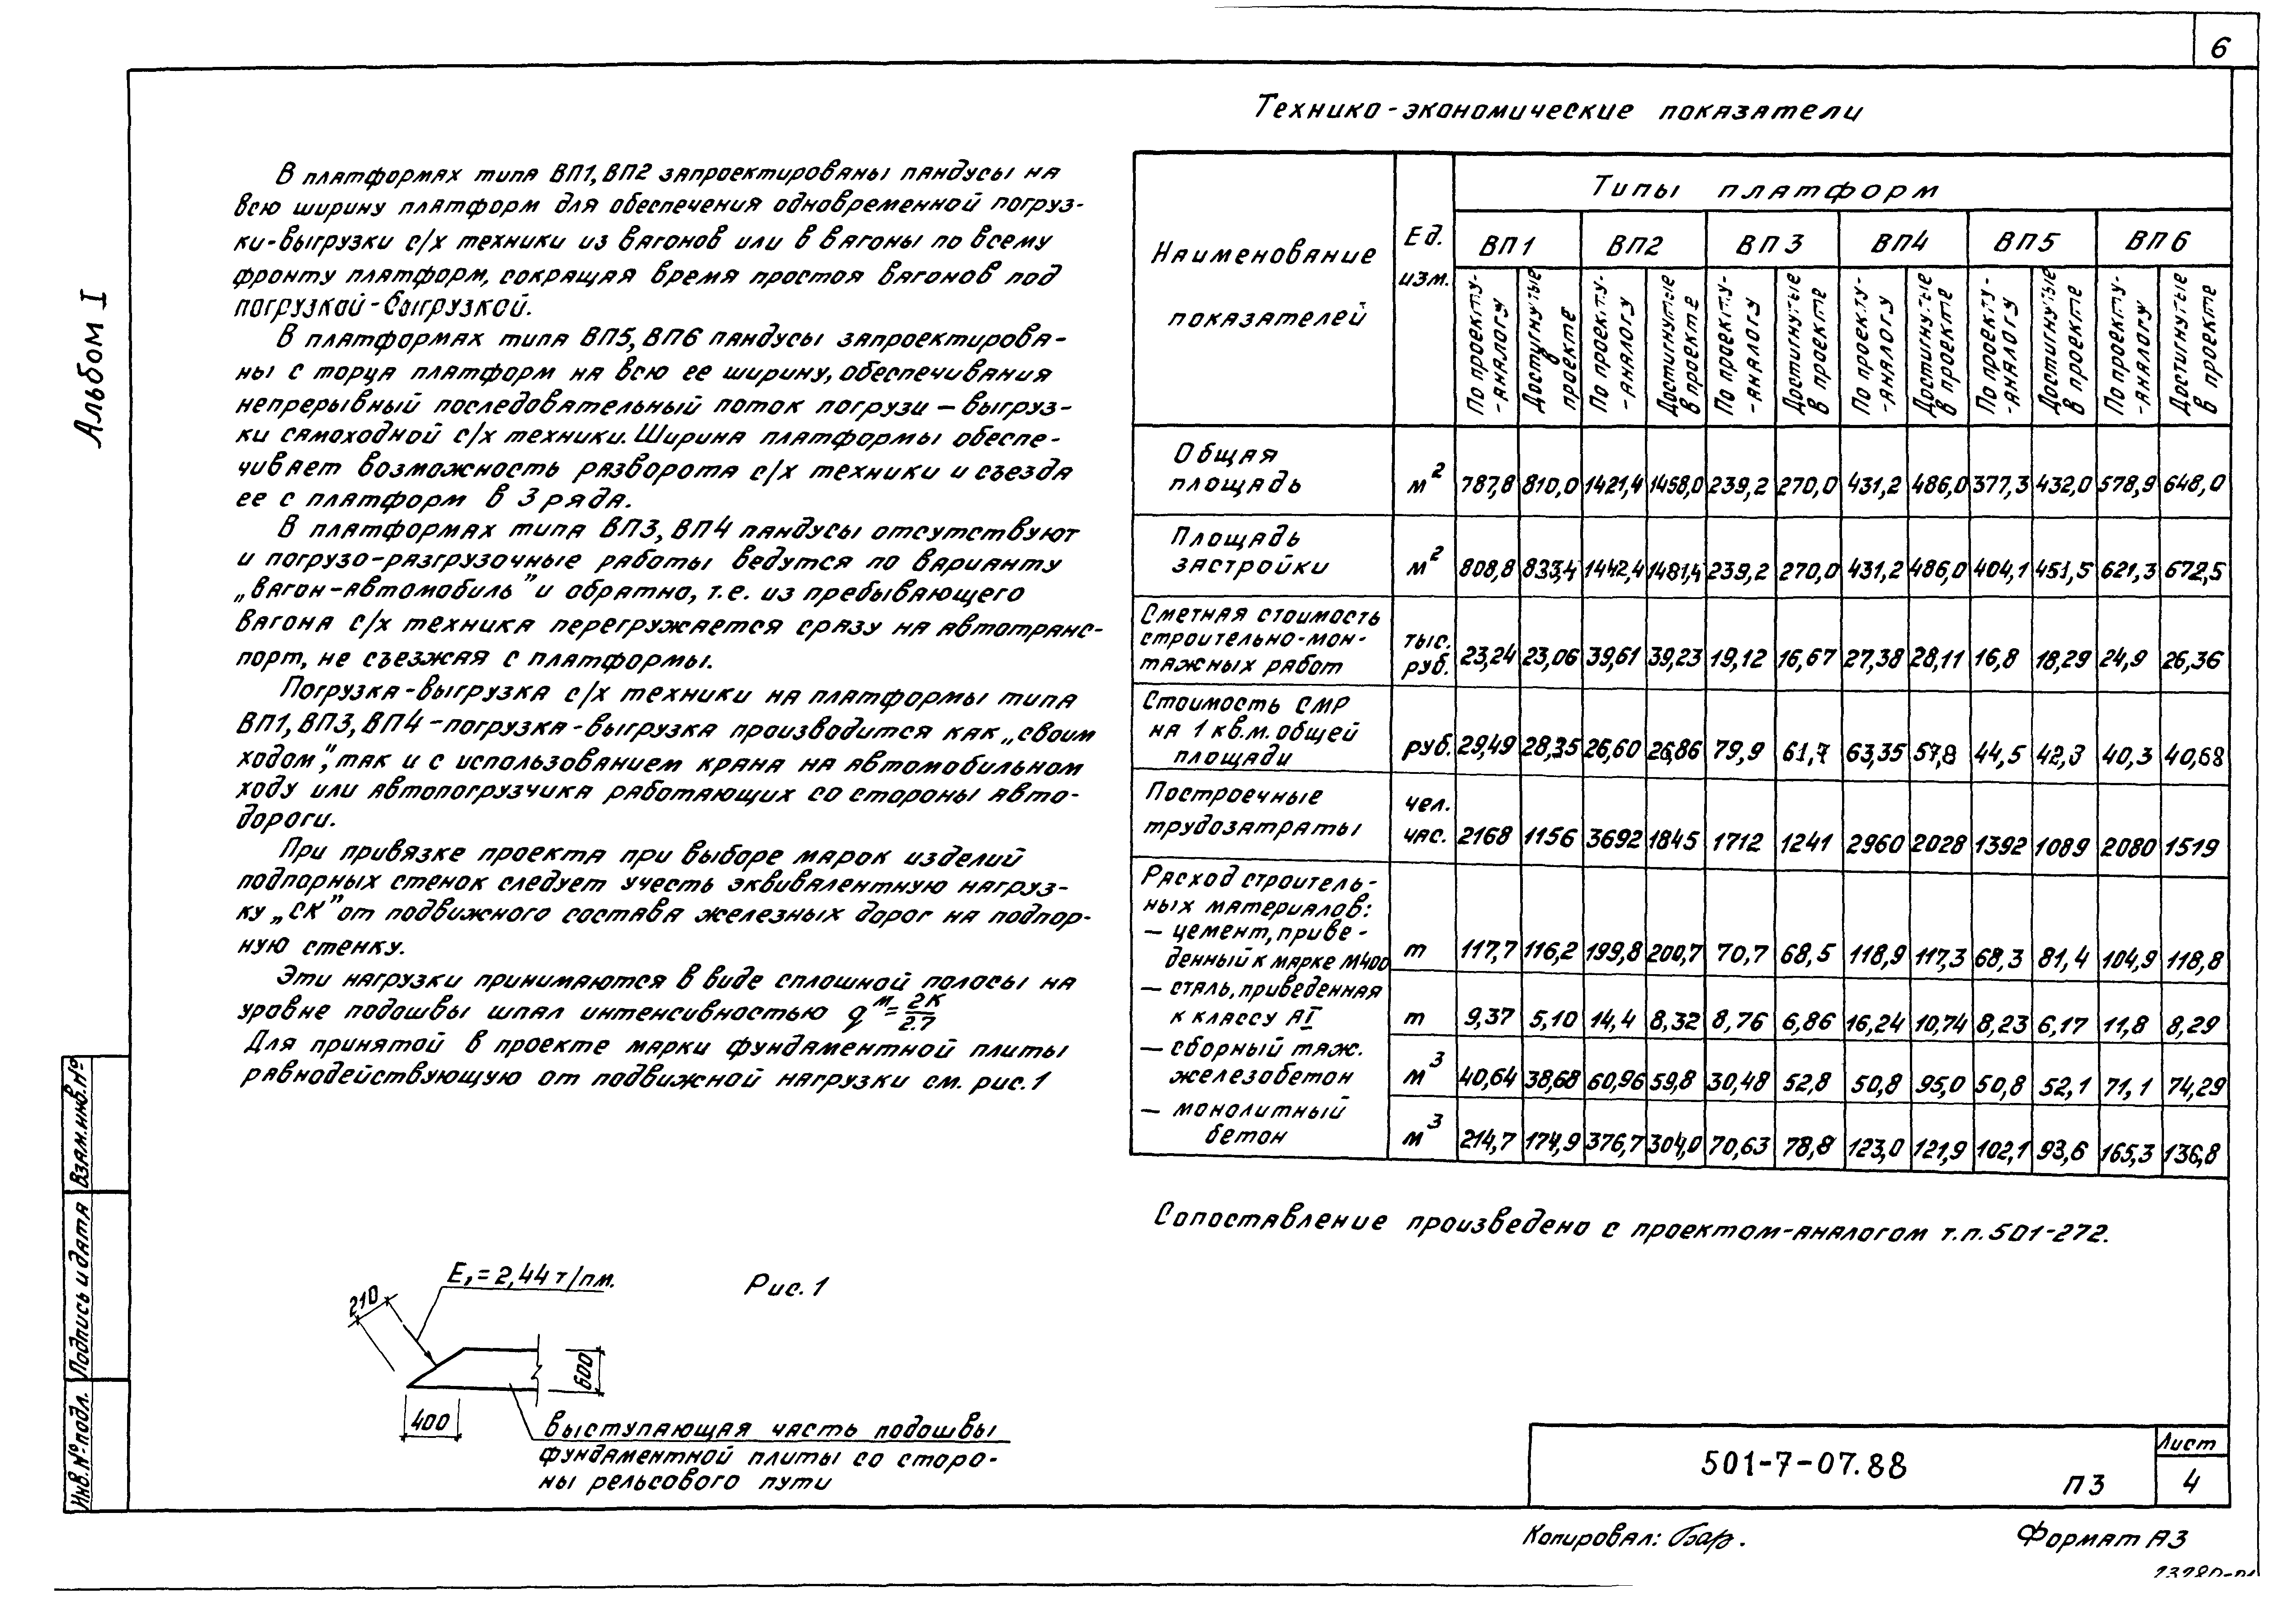 6
Альбом I
В платформах типа ВП1, ВП2 запроектированы пандусы на
всю ширину платформ для обеспечения одновременной погруз-
ки-выгрузки с/х техники из вагонов или в вагоны по всему
фронту платформ, сокращая время простоя вагонов под
погрузкой-выгрузкой.
В платформах типа ВП5, ВП6 пандусы запроектирова-
ны с торца платформ на всю ее ширину, обеспечивания
непрерывный последовательный поток погрузи — выгруз-
ки самоходной с/х техники. Ширина платформы обеспе-
чивает возможность разворота с/х техники и съезда
ее с платформ в 3 ряда.
В платформах типа ВП3, ВП4 пандусы отсутствуют
и погрузо-разгрузочные работы ведутся по варианту
„вагон-автомобиль" и обратно, т.е. из пребывающего
вагона с/х техника перегружается сразу на автотранс-
порт, не съезжая с платформы.
Погрузка-выгрузка с/х техники на платформы типа
ВП1, ВП3, ВП4 - погрузка-выгрузка производится как „своим
ходом", так и с использованием крана на автомобильном
ходу или автопогрузчика работающих со стороны авто-
дороги.
При привязке проекта при выборе марок изделий
подпорных стенок следует учесть эквивалентную нагруз-
ку „СК" от подвижного состава железных дорог на подпор-
ную стенку.
Эти нагрузки принимаются в виде сплошной полосы на
уровне подошвы шпал интенсивностью qᴹ = 2К/2.7
Для принятой в проекте марки фундаментной плиты
равнодействующую от подвижной нагрузки см. рис. 1
E₁ = 2,44 т/пм.
Рис. 1
210
600
400
выступающая часть подошвы
фундаментной плиты со сторо-
ны рельсового пути
Технико-экономические показатели
Наименование показателей | Ед. изм. | Типы платформ
ВП1 | ВП2 | ВП3 | ВП4 | ВП5 | ВП6
По проекту-аналогу | Достигнутые в проекте | По проекту-аналогу | Достигнутые в проекте | По проекту-аналогу | Достигнутые в проекте | По проекту-аналогу | Достигнутые в проекте | По проекту-аналогу | Достигнутые в проекте | По проекту-аналогу | Достигнутые в проекте
Общая площадь | м² | 787,8 | 810,0 | 1421,4 | 1458,0 | 239,2 | 270,0 | 431,2 | 486,0 | 377,3 | 432,0 | 578,9 | 648,0
Площадь застройки | м² | 808,8 | 833,4 | 1442,4 | 1481,4 | 239,2 | 270,0 | 431,2 | 486,0 | 404,1 | 451,5 | 621,3 | 672,5
Сметная стоимость строительно-монтажных работ | тыс. руб. | 23,24 | 23,06 | 39,61 | 39,23 | 19,12 | 16,67 | 27,38 | 28,11 | 16,8 | 18,29 | 24,9 | 26,36
Стоимость СМР на 1 кв.м. общей площади | руб. | 29,49 | 28,35 | 26,60 | 26,86 | 79,9 | 61,7 | 63,35 | 57,8 | 44,5 | 42,3 | 40,3 | 40,68
Построечные трудозатраты | чел. час. | 2168 | 1156 | 3692 | 1845 | 1712 | 1241 | 2960 | 2028 | 1392 | 1089 | 2080 | 1519
Расход строительных материалов:
— цемент, приведенный к марке М400 | т | 117,7 | 116,2 | 199,8 | 200,7 | 70,7 | 68,5 | 118,9 | 117,3 | 68,3 | 81,4 | 104,9 | 118,8
— сталь, приведенная к классу АI | т | 9,37 | 5,10 | 14,4 | 8,32 | 8,76 | 6,86 | 16,24 | 10,74 | 8,23 | 6,17 | 11,8 | 8,29
— сборный тяж. железобетон | м³ | 40,64 | 38,68 | 60,96 | 59,8 | 30,48 | 52,8 | 50,8 | 95,0 | 50,8 | 52,1 | 71,1 | 74,29
— монолитный бетон | м³ | 214,7 | 174,9 | 376,7 | 304,0 | 70,63 | 78,8 | 123,0 | 121,9 | 102,1 | 93,6 | 165,3 | 136,8
Сопоставление произведено с проектом-аналогом т.п. 501-272.
Взам.инв.№
Подпись и дата
Инв.№ подл.
501-7-07.88
ПЗ
Лист
4
Копировал: Бар.
Формат А3